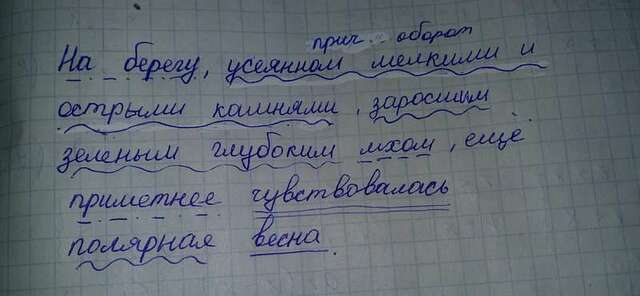 прич. оборот
На берегу, усеянном мелкими и
острыми камнями, заросшим
зеленым глубоким мхом, ещё
приметнее чувствовалась
полярная весна.